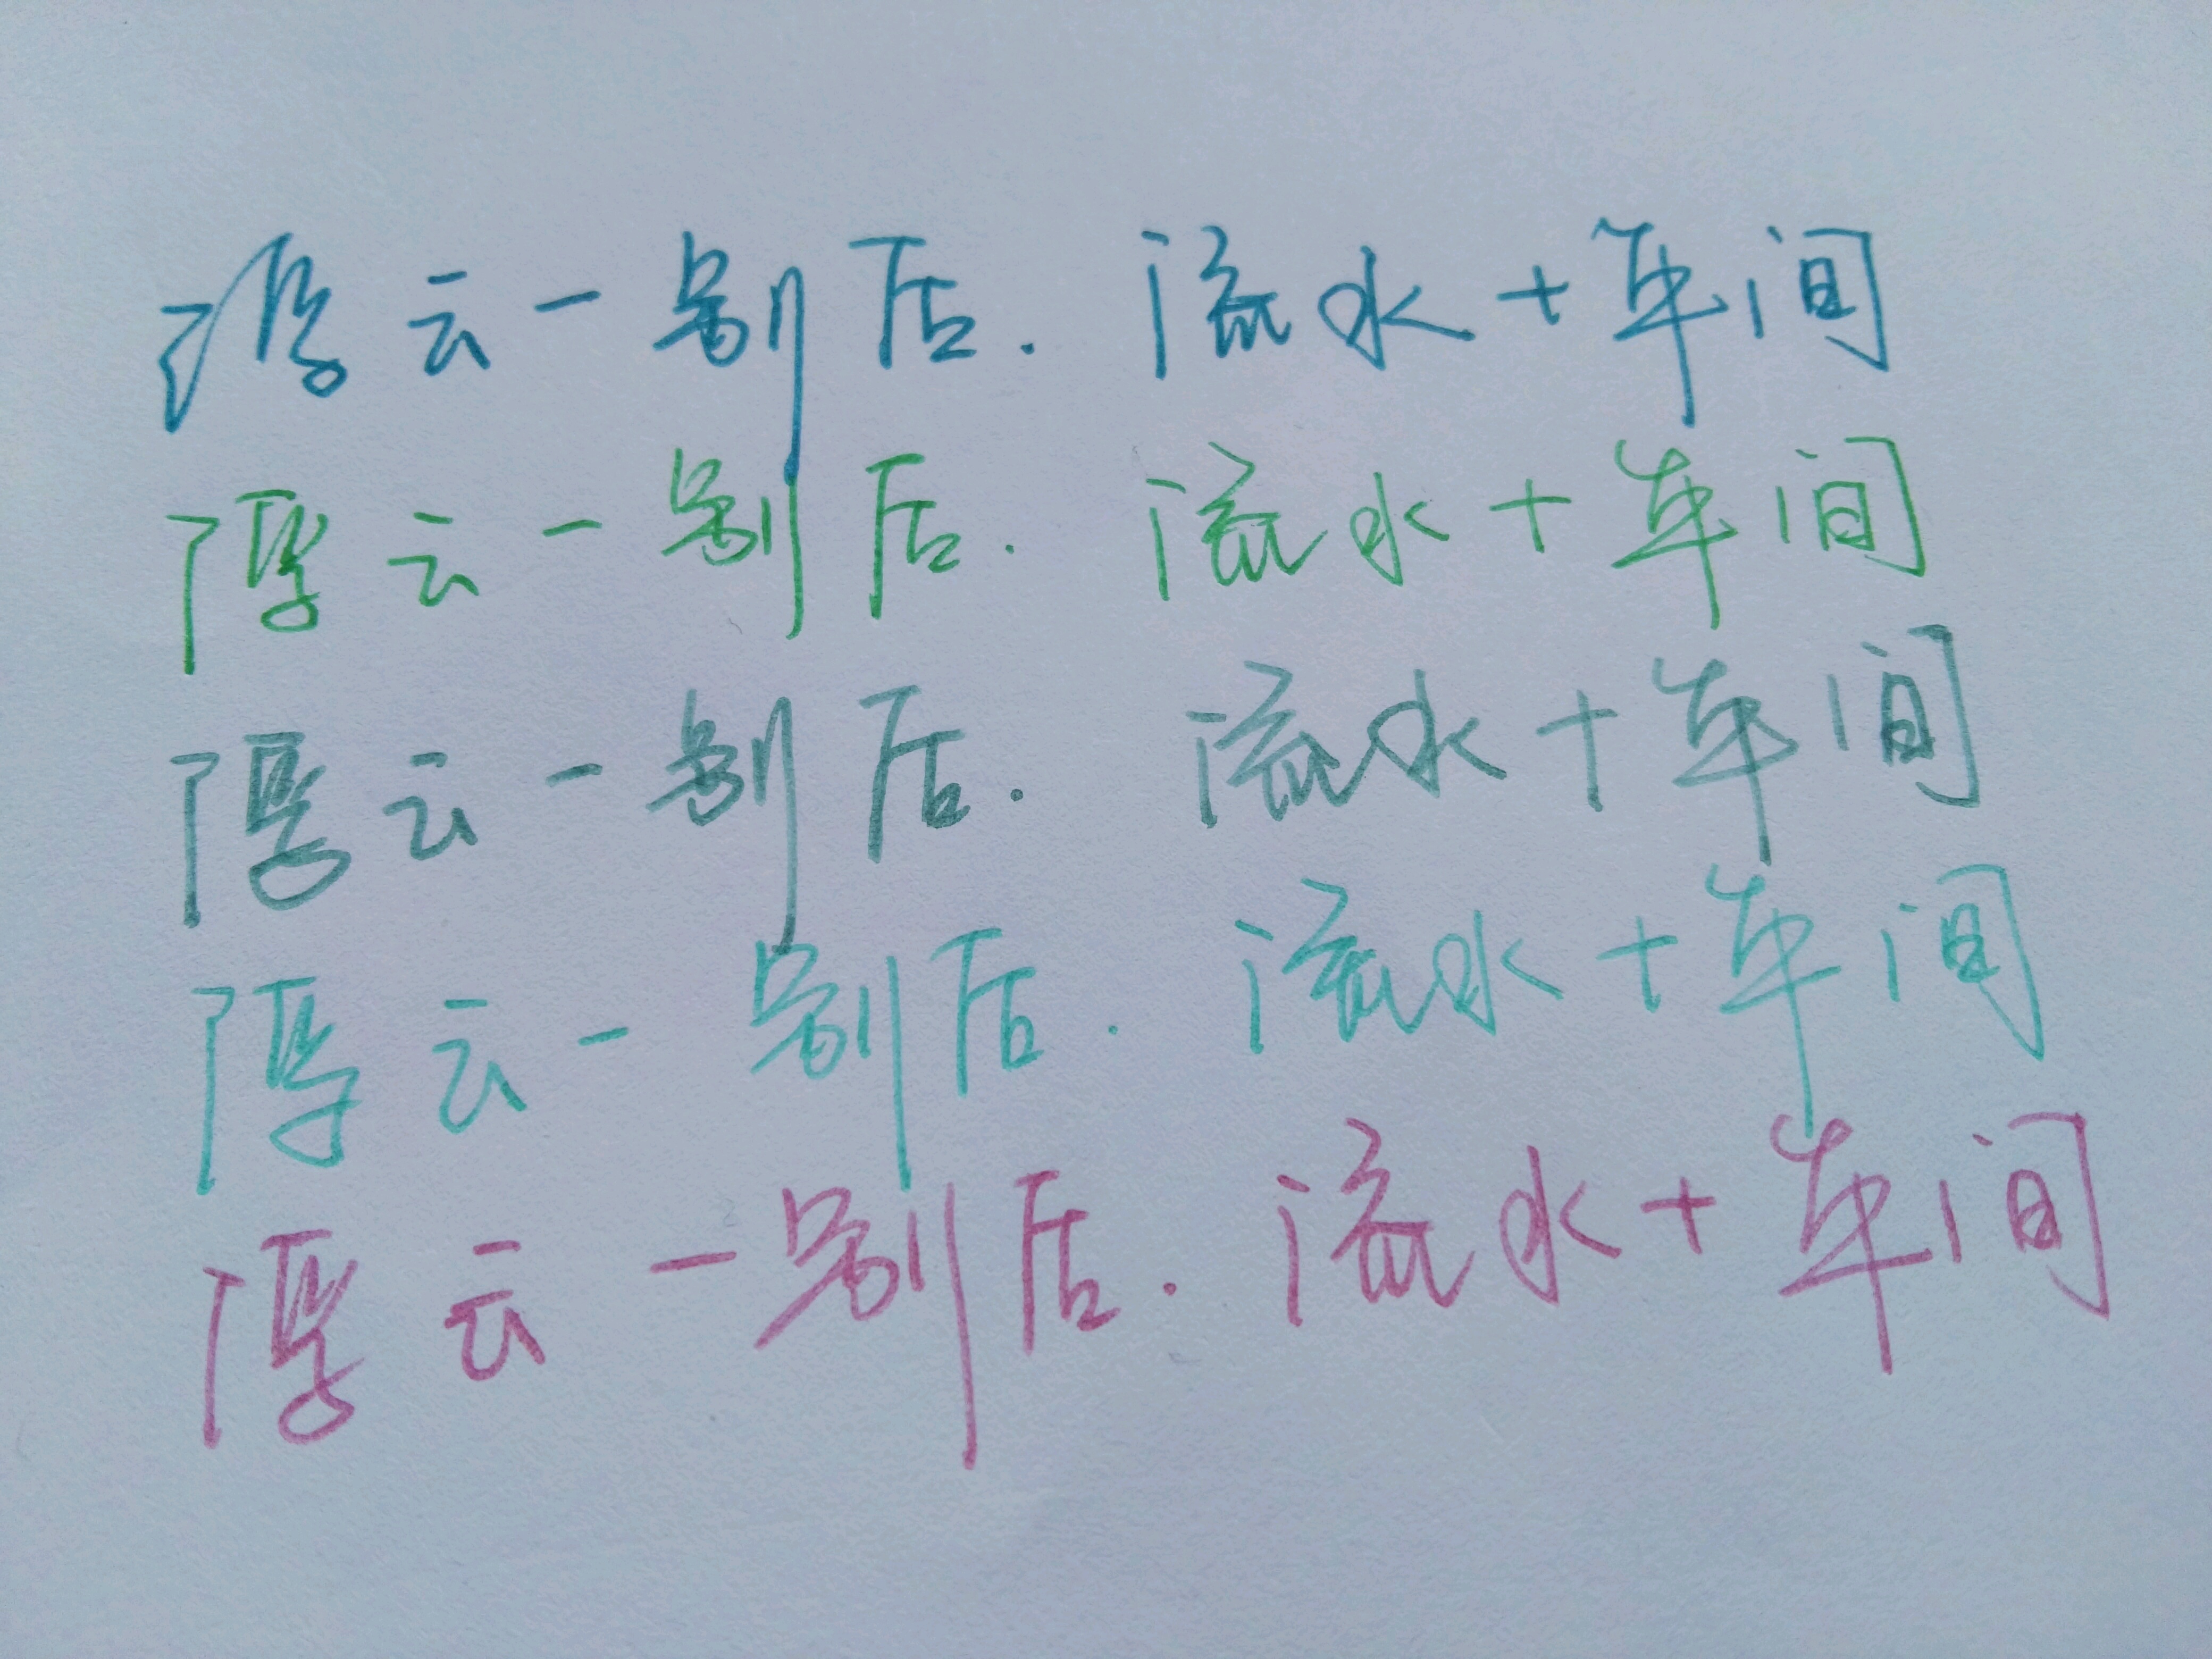 浮云一别后.流水十年间
浮云一别后.流水十年间
浮云一别后.流水十年间
浮云一别后.流水十年间
浮云一别后.流水十年间